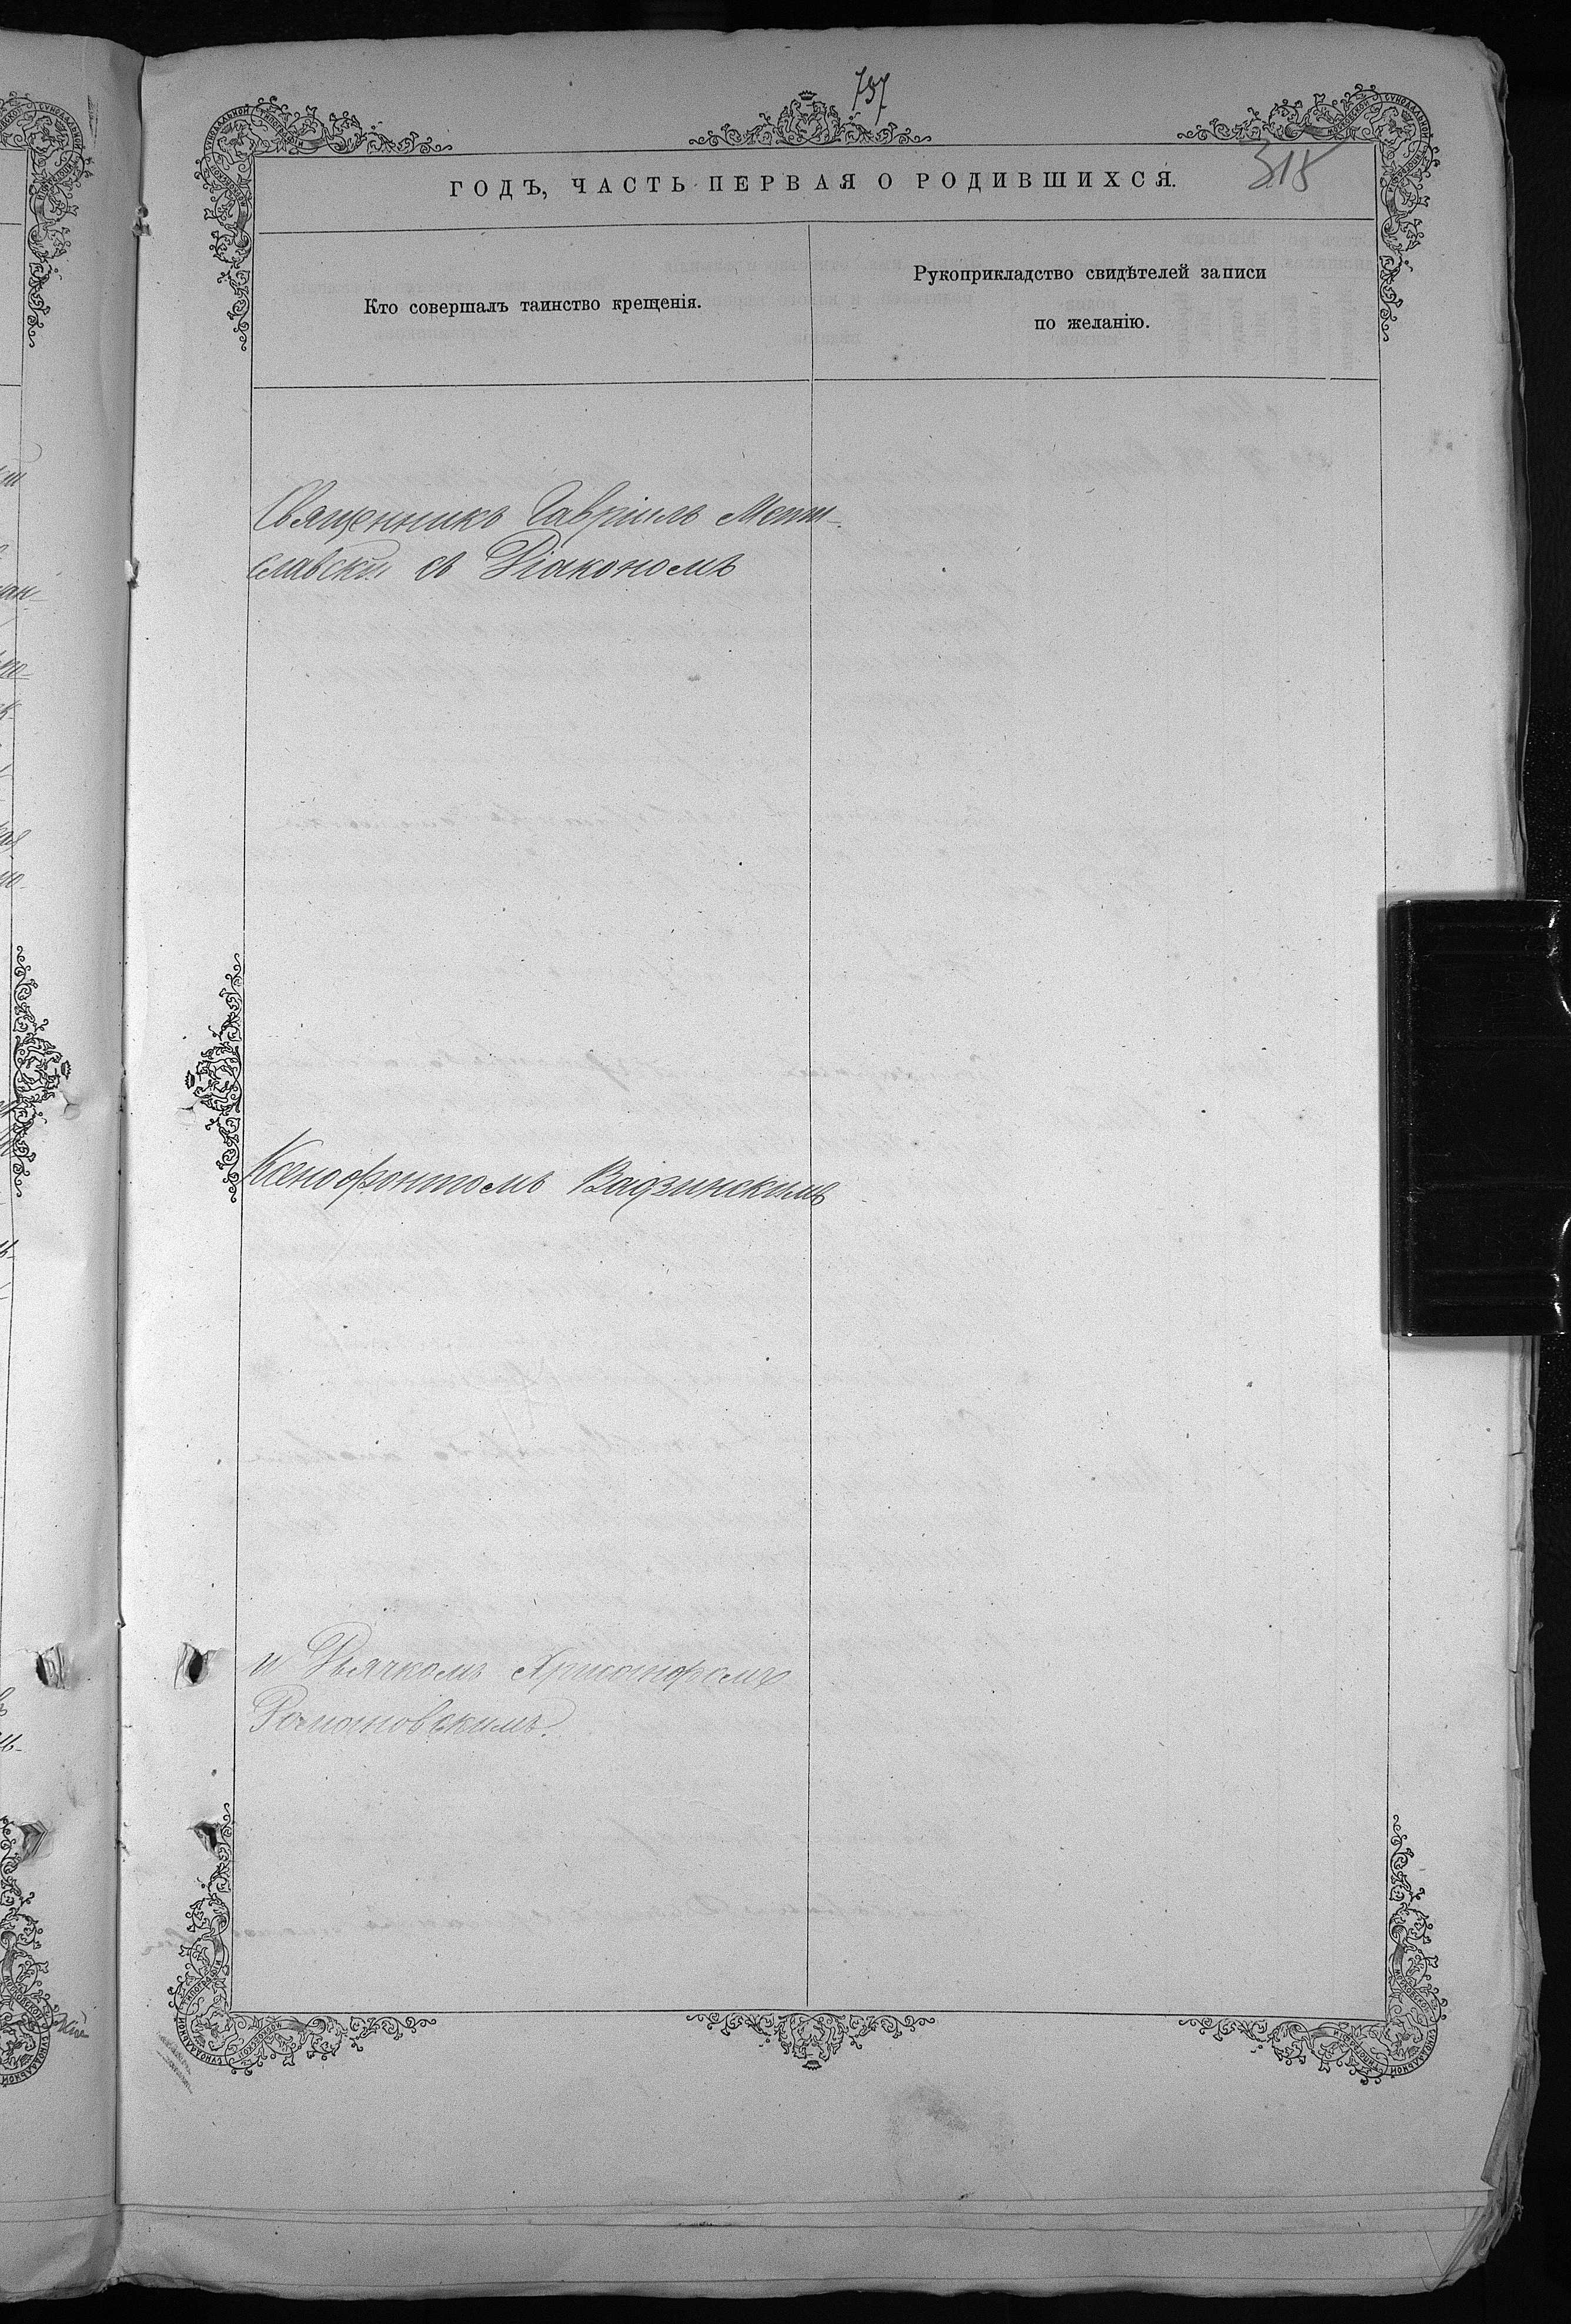 757
315
ГОДЪ, ЧАСТЬ ПЕРВАЯ О РОДИВШИХСЯ.
Кто совершалъ таинство крещенія.
Рукоприкладство свидѣтелей записи
по желанію.
Священникъ Гавріилъ Мети-
славскій съ Діакономъ
Ксенофонтомъ Вадзинскимъ
и Дьячкомъ
Романовскимъ.